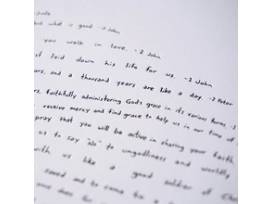 but what is good - 3 John
you walk in love. - 2 John
laid down his life for us. - 1 John
and a thousand years are like a day. - 2 Peter
faithfully administering God's grace in its various forms. - 1
receive mercy and find grace to help us in our time of
pray that you will be active in sharing your faith,
us to say "No" to ungodliness and worldly
with us like a good soldier of
saved and to come to a